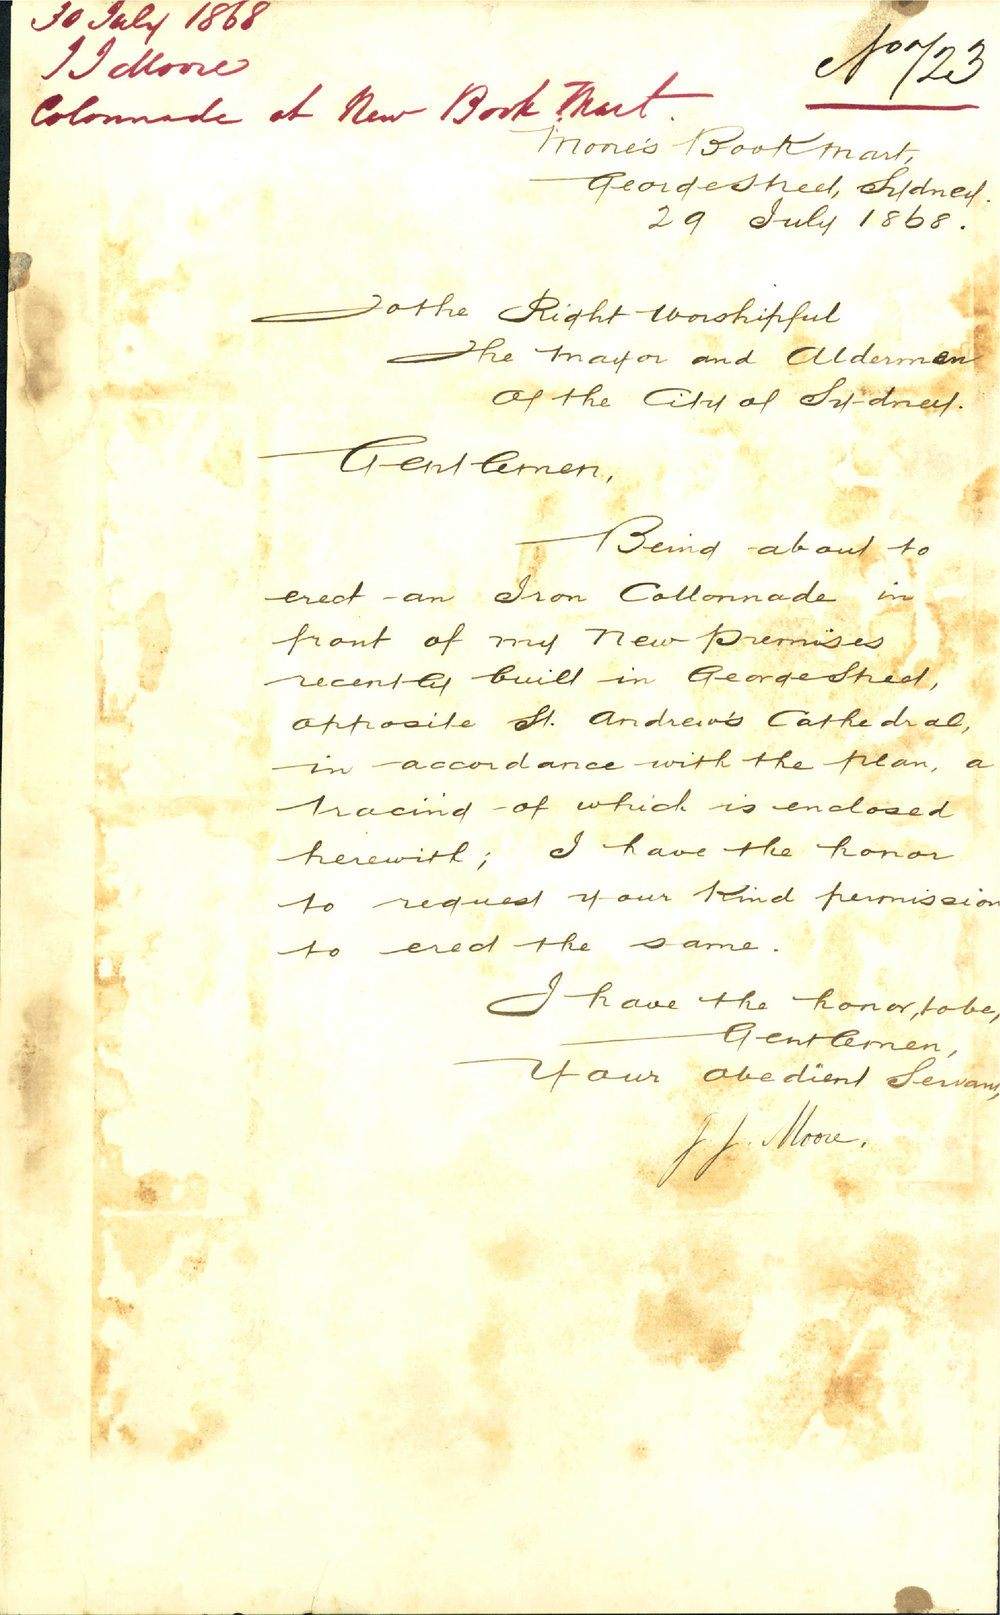 30 July 1868
J J Moore
Colonnade at New Book Mart.
No 723
Moore's Book Mart,
George Street, Sydney.
29 July 1868.
To the Right Worshipful
The Mayor and Aldermen
Of the City of Sydney.
Gentlemen,
Being about to
erect an Iron Collonnade in
front of my New premises
recently built in George Street,
opposite St. Andrew's Cathedral,
in accordance with the plan, a
tracing of which is enclosed
herewith; I have the honor
to request your Kind permission
to erect the same.
I have the honor, to be,
Gentlemen,
Your obedient Servant,
J J. Moore.